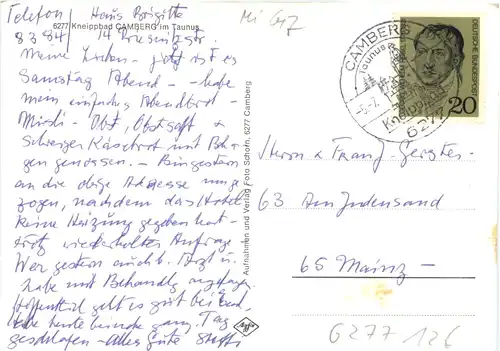 Telefon / Haus Brigitte
6277 Kneippbad CAMBERG im Taunus
8384 / 14
Meine Lieben - jetzt ist es
Samstag Abend - habe
mein einfaches Abendbrot -
Müsli - Obst, Obstsaft &
Schweizer Käsebrot mit Beha-
gen genossen. - Bin gestern
an die obige Adresse umge
zogen, nachdem das Hotel
keine Heizung gegeben hat -
trotz wiederholter Anfrage
War gestern auch b. Arzt u.
habe mit Behandlg angefangen.
Hoffentlich geht es gut bei Euch,
habe heute beinahe ganz. Tag
geschlafen - Alles Gute
Aufnahmen und Verlag Foto Schorn, 6277 Camberg
Agfa
Mi
CAMBERG
Taunus
Kneipp
6277
DEUTSCHE BUNDESPOST
20
Herrn & Frau
63 Am Judensand
65 Mainz -
6277 126